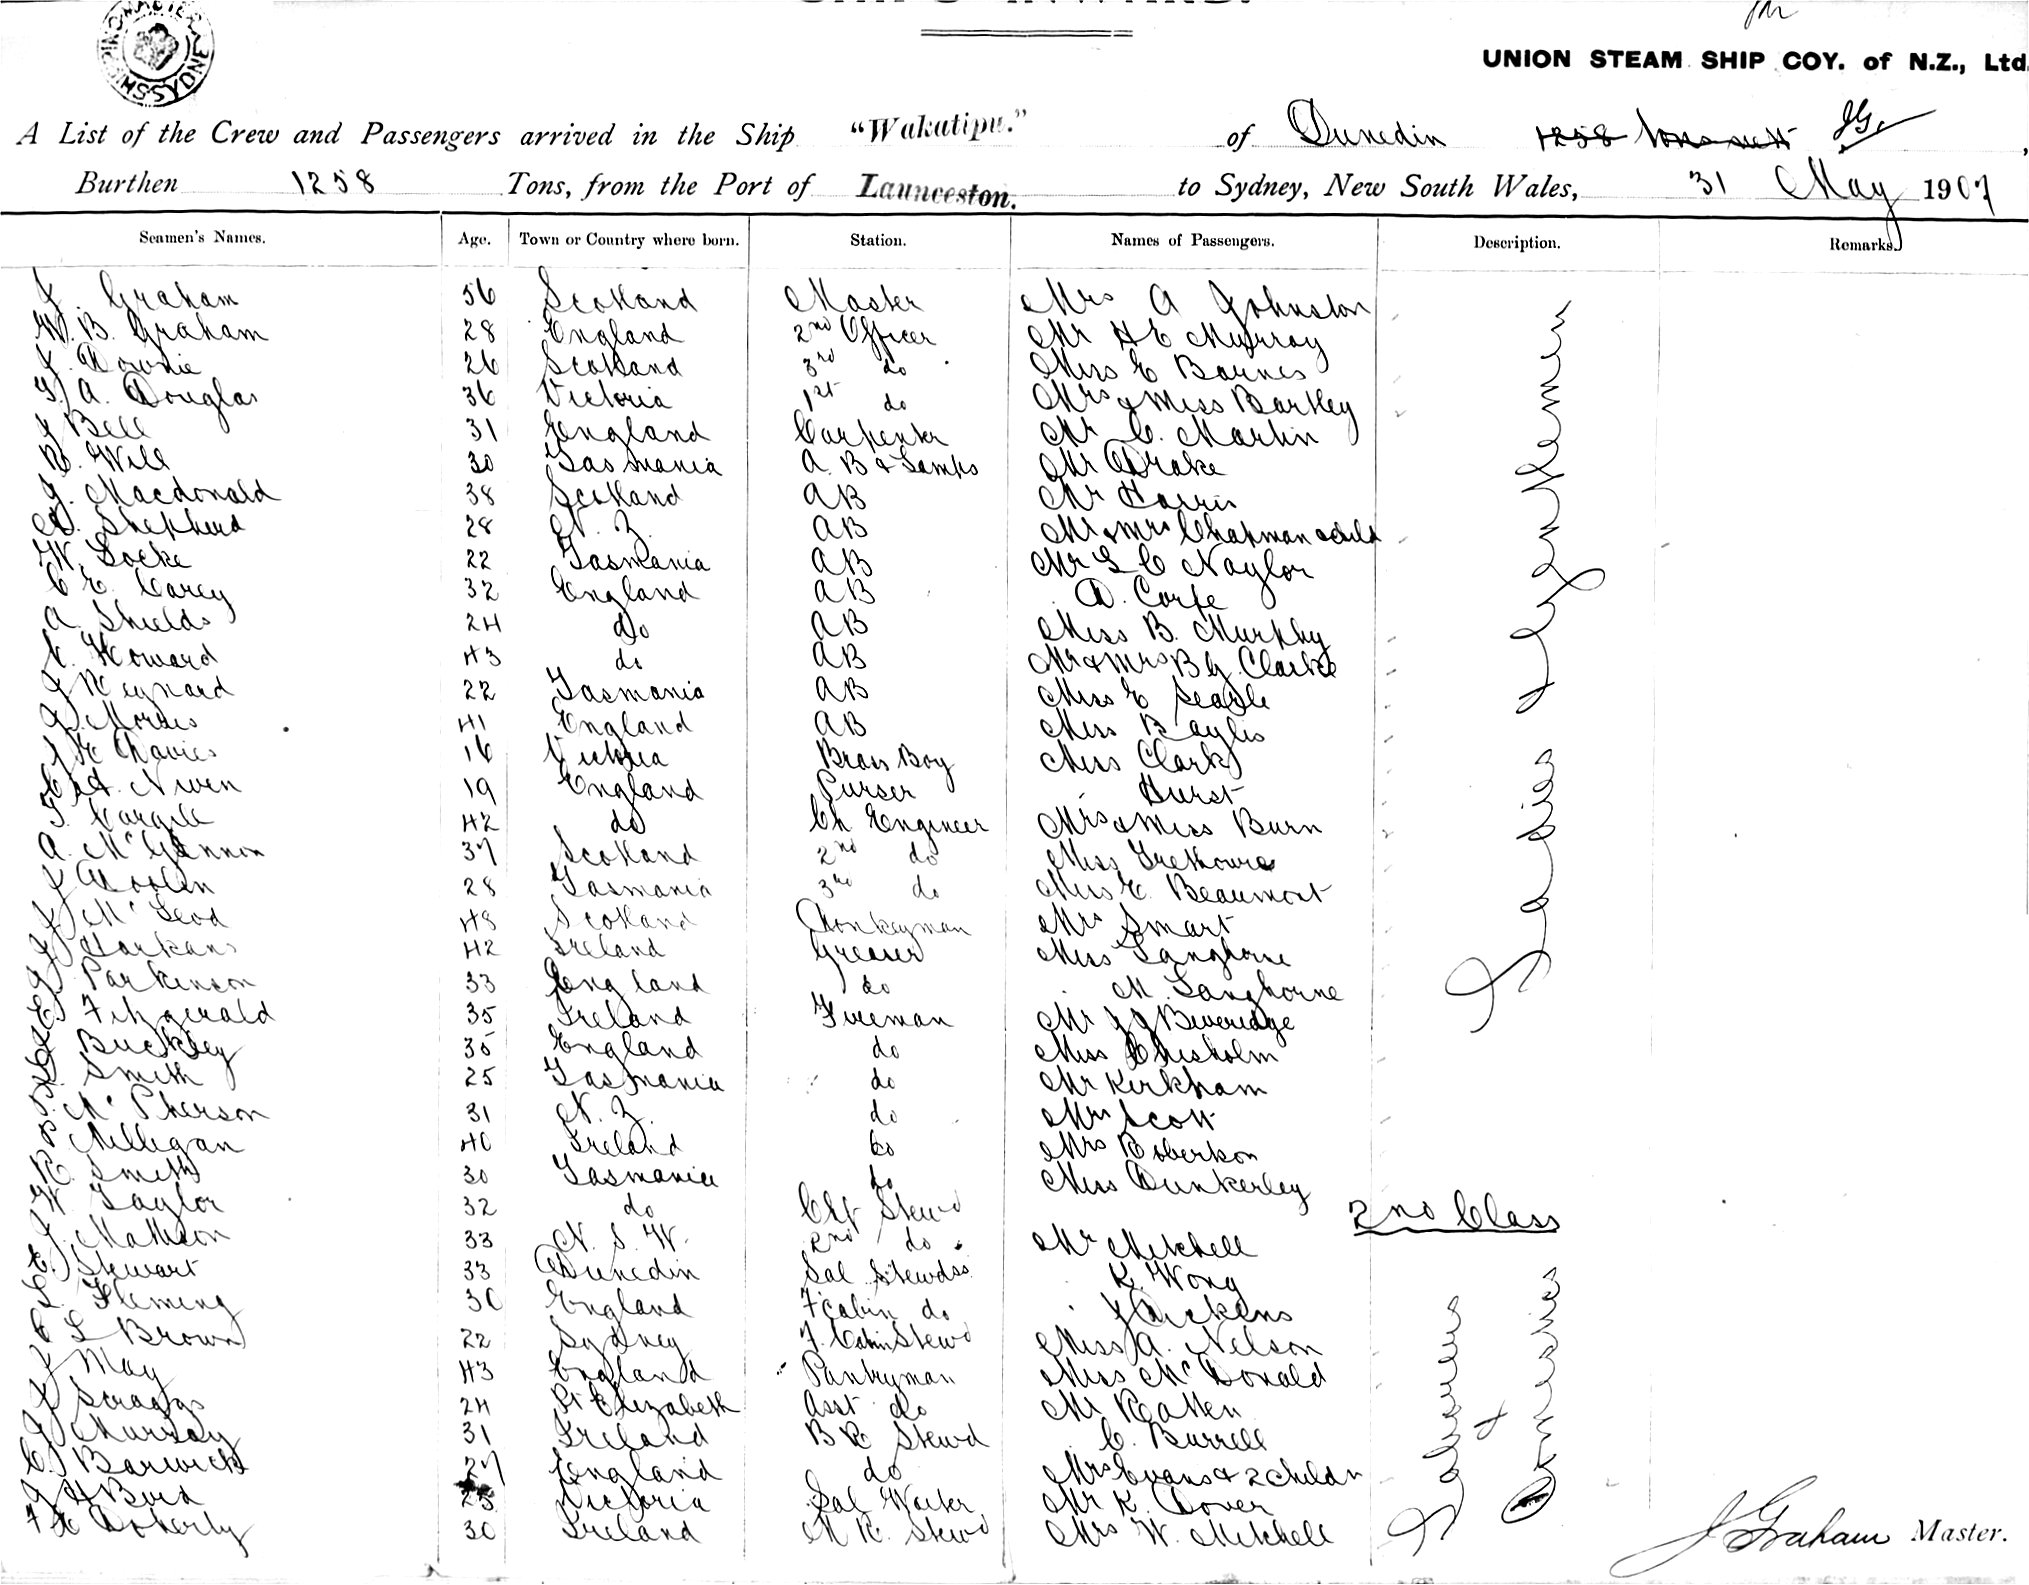 SHIPPING MASTER SYDNEY
UNION STEAM SHIP COY. of N.Z., Ltd.
A List of the Crew and Passengers arrived in the Ship "Wakatipu." of Dunedin 1258 Tons nett JG.
Burthen 1258 Tons, from the Port of Launceston. to Sydney, New South Wales, 31 May 1907
Seamen's Names. Age. Town or Country where born. Station. Names of Passengers. Description. Remarks.
J. Graham 56 Scotland Master Mrs A Johnston
W. B. Graham 28 England 2nd Officer Mr H E Murray
J. Downie 26 Scotland 3rd do Miss E Barnes
A. Douglas 36 Victoria 1st do Mrs & Miss Bartley
J Bell 31 England Carpenter Mr C. Martin
R. Will 30 Tasmania A. B & Lamps Mr Drake
J. Macdonald 38 Scotland AB Mr Harris
Shepherd 28 N. Z. AB Mr & Mrs Chapman & child
W. Locke 22 Tasmania AB Mr L C Naylor
C E. Carey 32 England AB D. Corfe
A. Shields 24 do AB Miss B. Murphy
C. Howard 43 do AB Mr & Mrs B G. Clarke
J Reynard 22 Tasmania AB Miss E Searle
Morris 41 England AB Miss Baylis
Davies 16 Victoria Brass Boy Miss Clark
Niven 19 England Purser Hurst
T. Cargill 42 do Ch Engineer Mrs & Miss Burn
A. McGlennon 37 Scotland 2nd do Miss
J Doolan 28 Tasmania 3rd do Miss E. Beaumont
J McLeod 48 Scotland Donkeyman Mrs Smart
Harkans 42 Ireland Greaser Miss Langhorne
Parkinson 33 England do M. Langhorne
Fitzgerald 35 Ireland Fireman Mr J J Beveridge
Buckley 35 England do Miss Chisholm
Smith 25 Tasmania do Mr Kirkham
McPherson 31 N. Z. do Mrs Scott
P Milligan 40 Ireland do Mrs Robertson
R. Smith 30 Tasmania do Miss Dunkerley
W Taylor 32 do Chf Stewd
2nd Class
J. Mattson 33 N. S. W. 2nd do Mr Mitchell
E. Stewart 33 Dunedin Sal Stewdss K. Wong
L. Fleming 30 England F cabin do J Dickens
C L Brown 22 Sydney F. Cabin Stewd Miss A. Nelson
J May 43 England Pantryman Miss McDonald
J Scraggs 24 Pt Elizabeth Asst do Mr Ratten
Murray 31 Ireland B R Stewd C. Burrell
C. Barwick 27 England do Mrs Evans & 2 childn
J H Bird 25 Victoria Sal Waiter Mr K. Dover
F Doherty 30 Ireland M R. Stewd Mrs W. Mitchell
& Gentlemen
Ladies
Labourers
&
Domestics
J Graham Master.